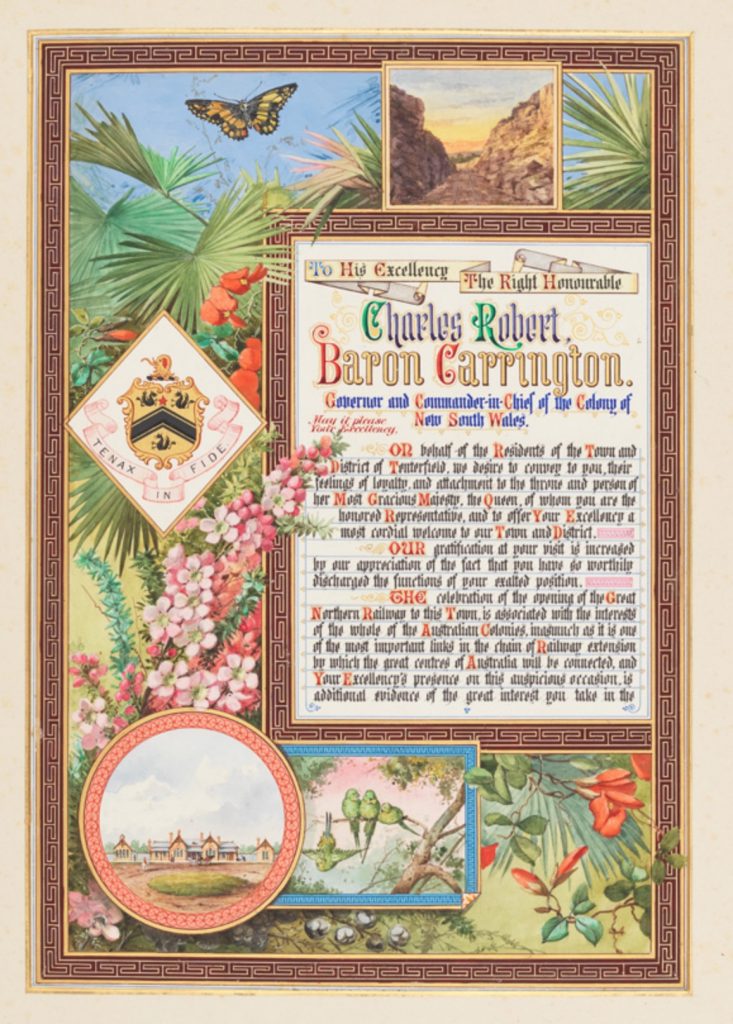 To His Excellency
The Right Honourable
Charles Robert,
Baron Carrington.
Governor and Commander-in-Chief of the Colony of
New South Wales.
May it please
Your Excellency.
ON behalf of the Residents of the Town and
District of Tenterfield, we desire to convey to you, their
feelings of loyalty, and attachment to the throne and person of
her Most Gracious Majesty, the Queen, of whom you are the
honored Representative, and to offer Your Excellency a
most cordial welcome to our Town and District.
OUR gratification at your visit is increased
by our appreciation of the fact that you have so worthily
discharged the functions of your exalted position.
THE celebration of the opening of the Great
Northern Railway to this Town, is associated with the interests
of the whole of the Australian Colonies, inasmuch as it is one
of the most important links in the chain of Railway extension
by which the great centres of Australia will be connected, and
Your Excellency's presence on this auspicious occasion, is
additional evidence of the great interest you take in the
TENAX IN FIDE